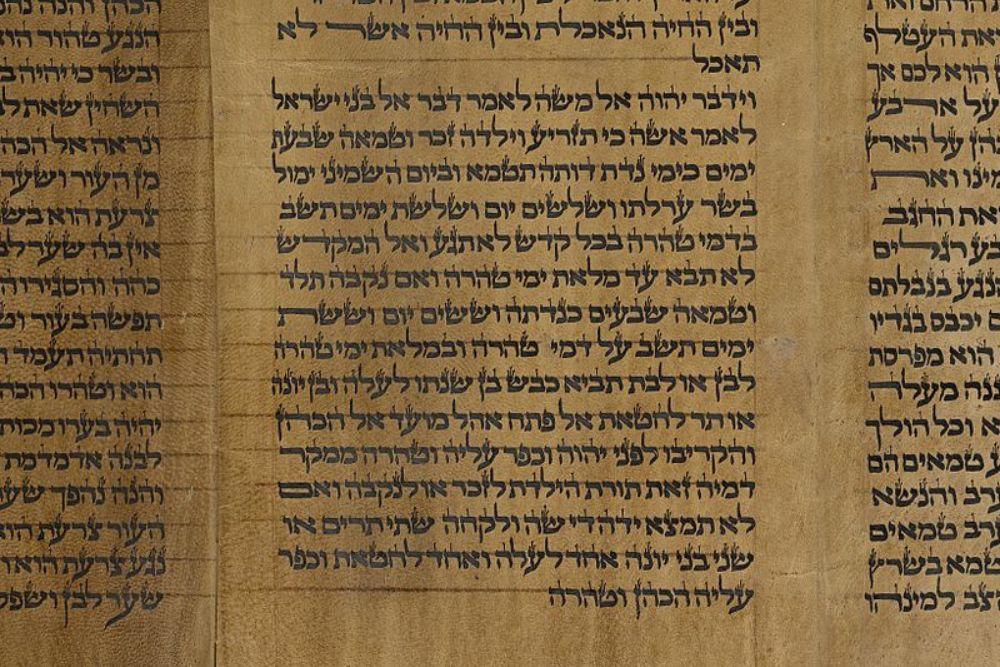 ואת
את העטלף
הוא לכם אך
על ארבע
על הארץ
ואת
החגב
רגלים
בנבלתם
יכבס בגדיו
הוא מפרסת
מעלה
וכל הולך
טמאים הם
והנשא
טמאים
בשרץ
למינהו
ובין החיה הנאכלת ובין החיה אשר לא
תאכל
וידבר יהוה אל משה לאמר דבר אל בני ישראל
לאמר אשה כי תזריע וילדה זכר וטמאה שבעת
ימים כימי נדת דותה תטמא וביום השמיני ימול
בשר ערלתו ושלשים יום ושלשת ימים תשב
בדמי טהרה בכל קדש לא תגע ואל המקדש
לא תבא עד מלאת ימי טהרה ואם נקבה תלד
וטמאה שבעים כנדתה וששים יום וששת
ימים תשב על דמי טהרה ובמלאת ימי טהרה
לבן או לבת תביא כבש בן שנתו לעלה ובן יונה
או תר לחטאת אל פתח אהל מועד אל הכהן
והקריבו לפני יהוה וכפר עליה וטהרה ממקר
דמיה זאת תורת הילדת לזכר או לנקבה ואם
לא תמצא ידה די שה ולקחה שתי תרים או
שני בני יונה אחד לעלה ואחד לחטאת וכפר
עליה הכהן וטהרה
הכהן והנה
הנגע טהור הוא
ובשר כי יהיה
השחין שאת
ונראה אל
מן העור ושער
צרעת הוא
אין בה שער
כהה והסגירו
תפשה בעור
תחתיה תעמד
הוא וטהרו
יהיה בערו מכות
לבנה אדמדמת
והנה נהפך
העור צרעת
נגע צרעת הוא
שער לבן